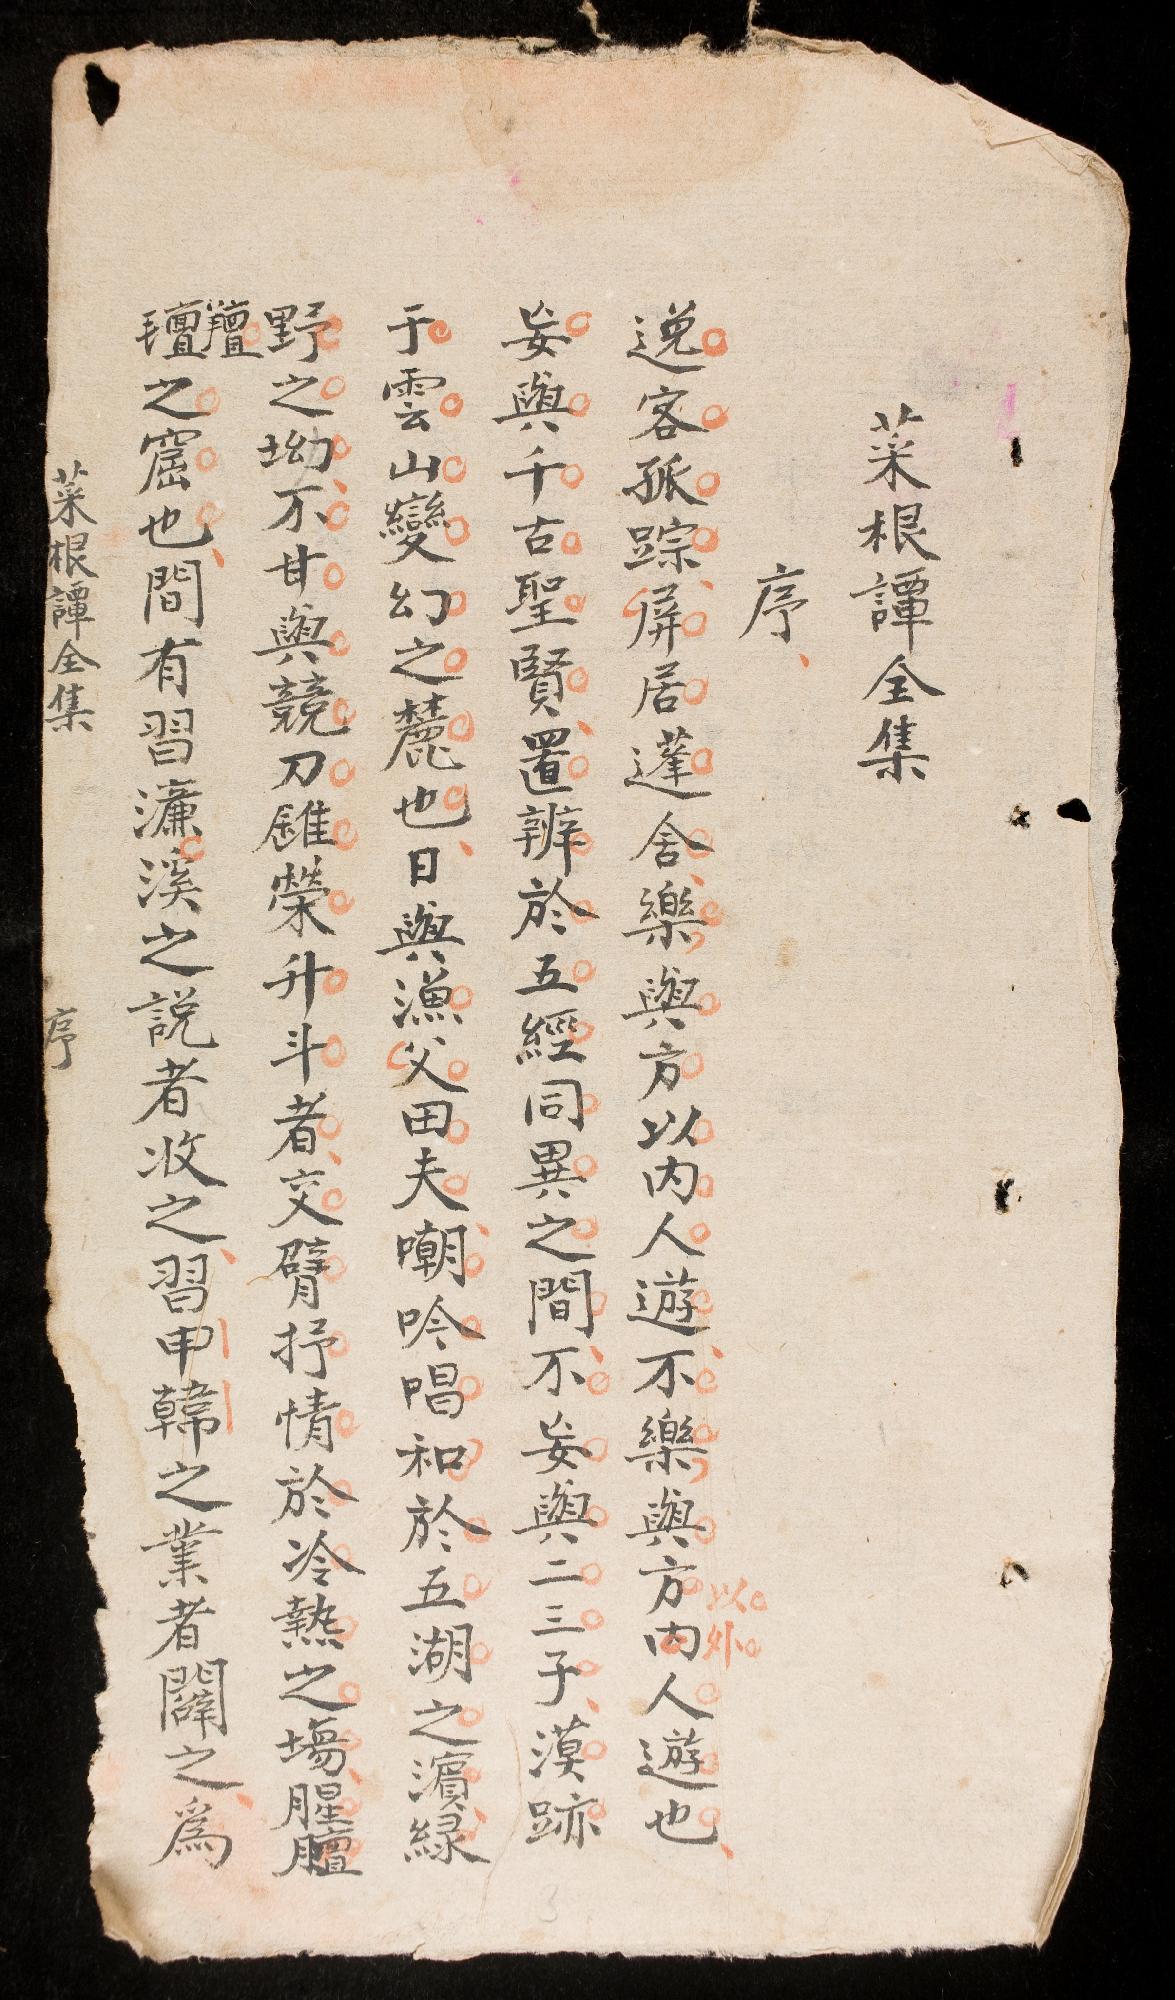 菜根譚全集
序
逸客孤踪屏居蓬舍樂與方以内人遊不樂與方内人遊也
以外
妄與千古聖賢置辨於五經同異之間不妄與二三子漠跡
于雲山變幻之麓也日與漁父田夫嘲吟唱和於五湖之濵緑
野之坳不甘與競刀錐榮升斗者交臂抒情於冷熱之塲腥膻
羶
之窟也間有習濂溪之説者收之習申韓之業者闢之爲
菜根譚全集
序